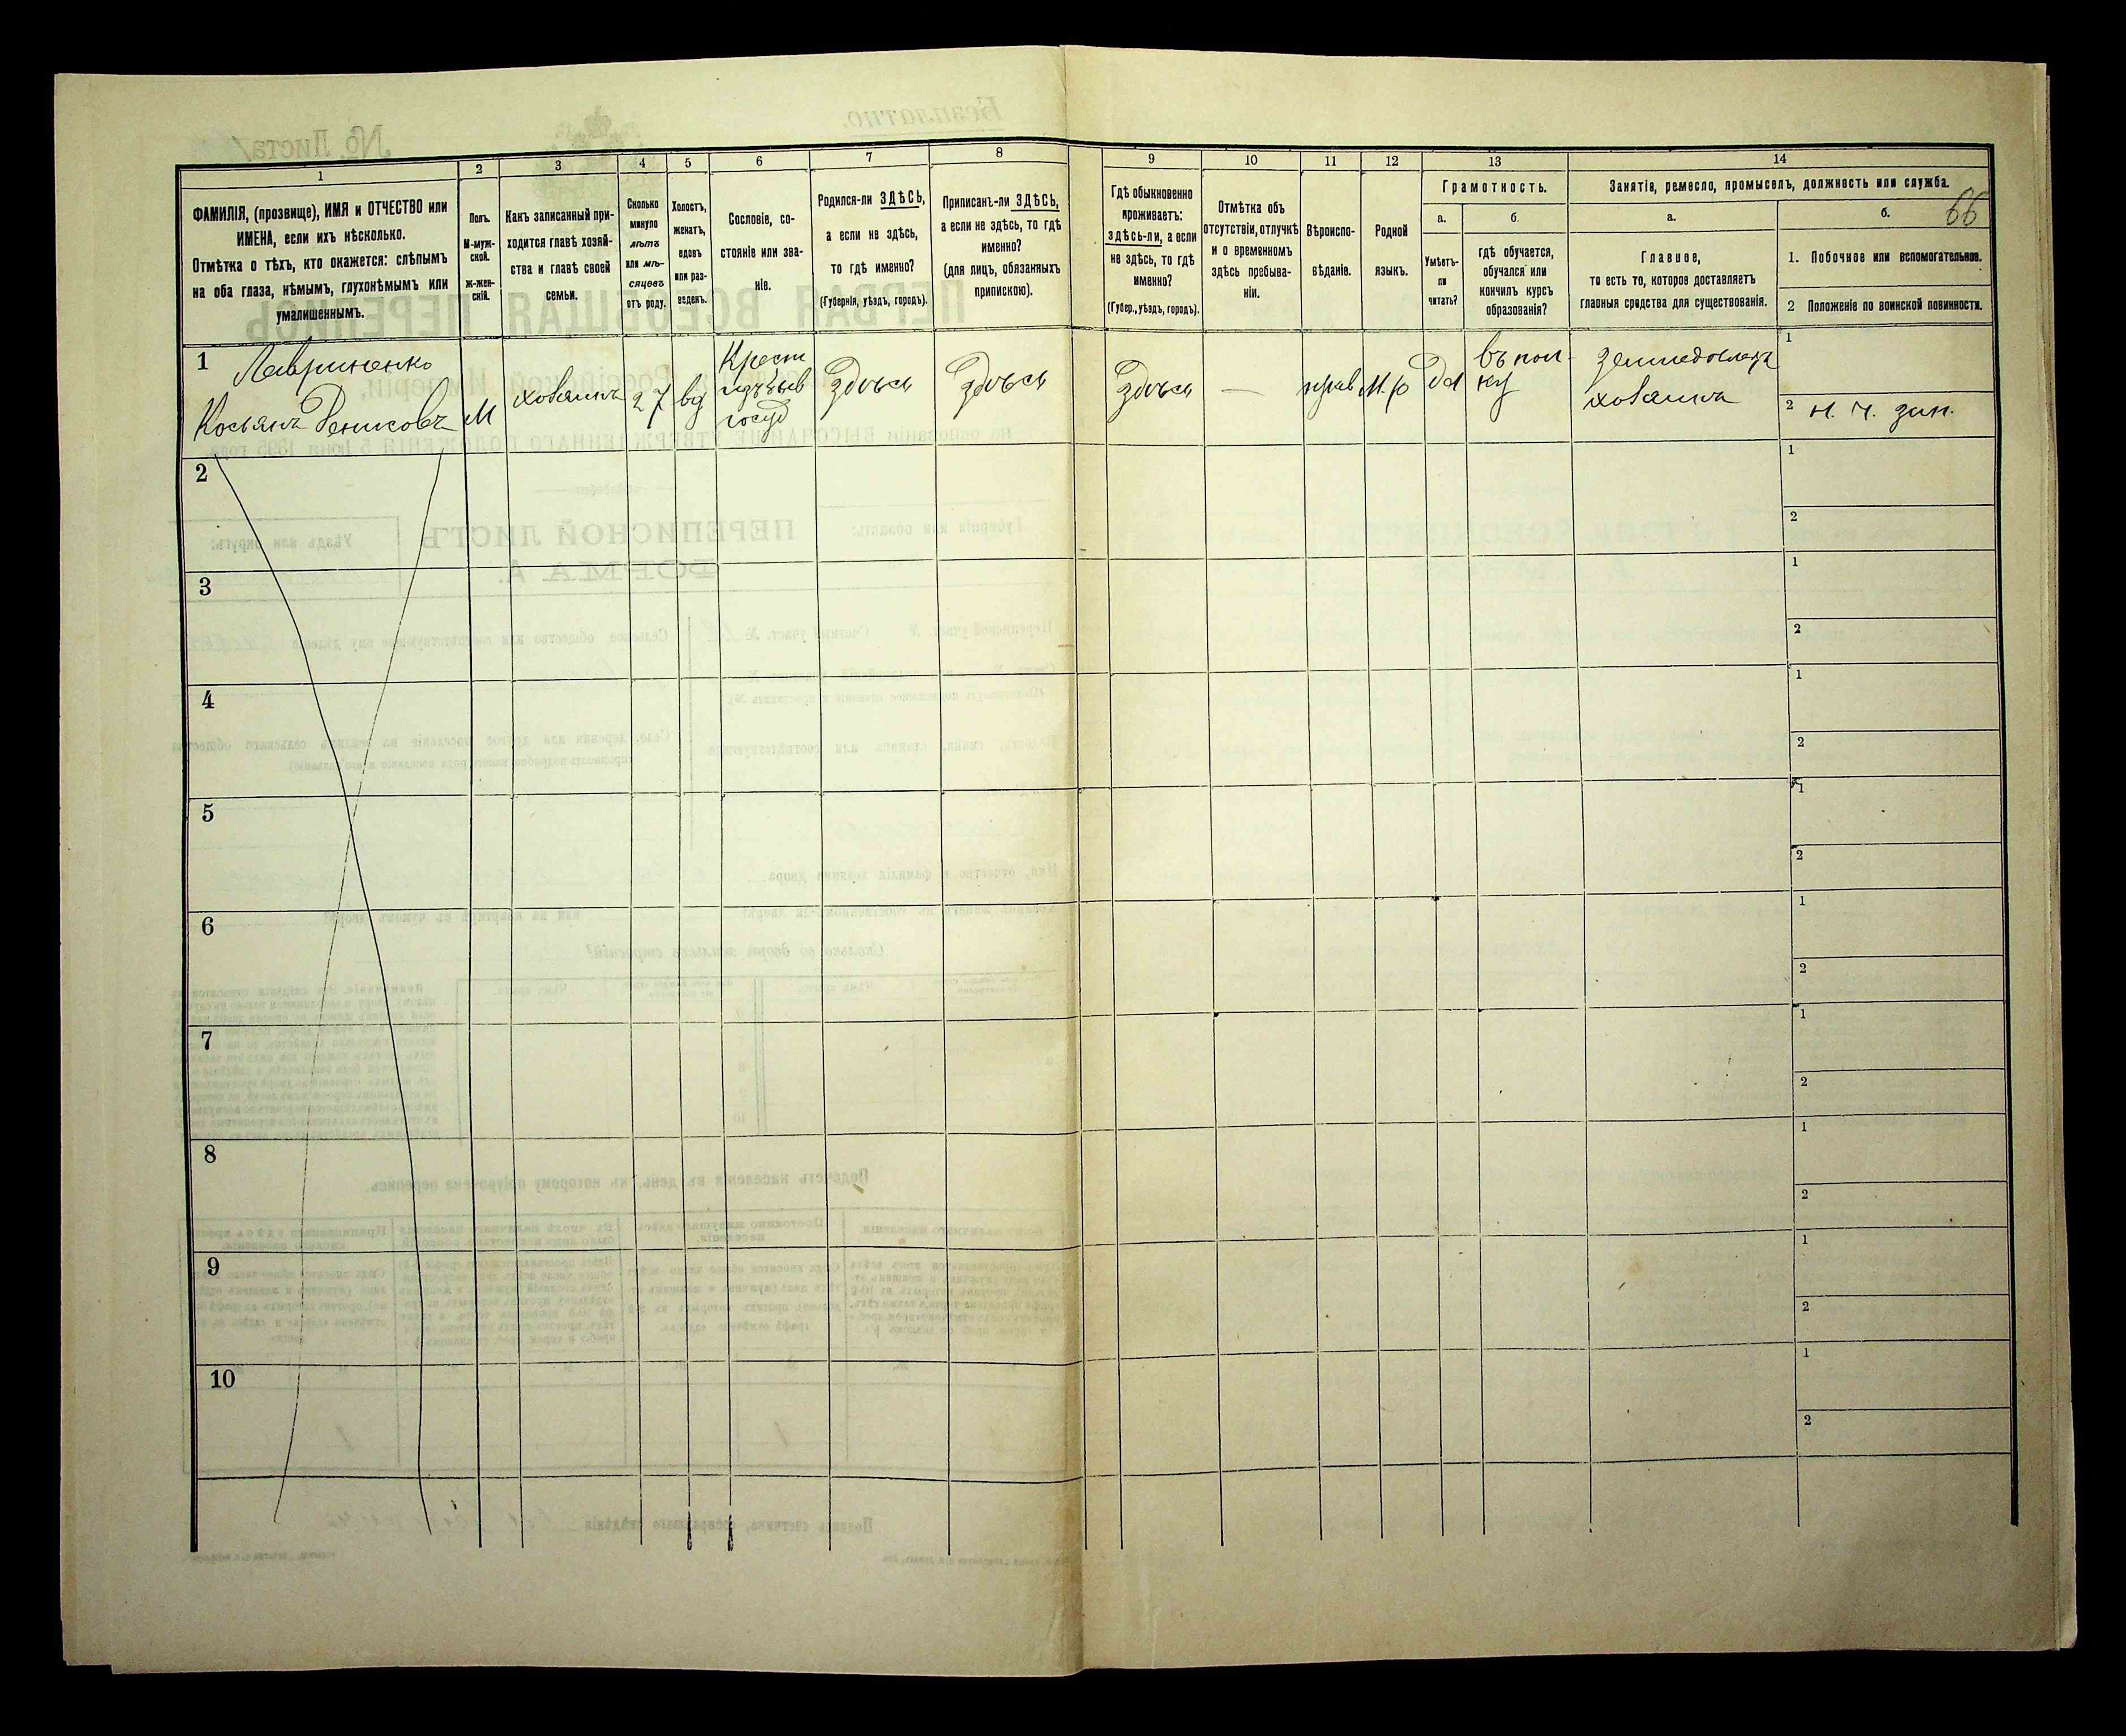 66
1 2 3 4 5 6 7 8 9 10 11 12 13 14
ФАМИЛІЯ, (прозвище), ИМЯ и ОТЧЕСТВО или
ИМЕНА, если ихъ нѣсколько.
Отмѣтка о тѣхъ, кто окажется: слѣпымъ
на оба глаза, нѣмымъ, глухонѣмымъ или
умалишеннымъ.
Полъ.
М-муж-
ской.
Ж-жен-
скій.
Какъ записанный при-
ходится главѣ хозяй-
ства и главѣ своей
семьи.
Сколько
минуло
лѣтъ
или мѣ-
сяцевъ
отъ роду.
Холостъ,
женатъ,
вдовъ
или раз-
веденъ.
Сословіе, со-
стояніе или зва-
ніе.
Родился-ли ЗДѢСЬ,
а если не здѣсь,
то гдѣ именно?
(Губернія, уѣздъ, городъ).
Приписанъ-ли ЗДѢСЬ,
а если не здѣсь, то гдѣ
именно?
(для лицъ, обязанныхъ
припискою).
Гдѣ обыкновенно
проживаетъ:
здѣсь-ли, а если
не здѣсь, то гдѣ
именно?
(Губер., уѣздъ, городъ).
Отмѣтка объ
отсутствіи, отлучкѣ
и о временномъ
здѣсь пребыва-
ніи.
Вѣроиспо-
вѣданіе.
Родной
языкъ.
Грамотность.
а.
Умѣетъ-
ли
читать?
б.
гдѣ обучается,
обучался или
кончилъ курсъ
образованія?
Занятія, ремесло, промыселъ, должность или служба.
а.
Главное,
то есть то, которое доставляетъ
главныя средства для существованія.
б.
1. Побочное или вспомогательное.
2 Положеніе по воинской повинности.
1 Лавриненко
Косьянъ Денисовъ
М
хозяинъ
27
вд
Крест
госуд
Здѣсь
Здѣсь
Здѣсь
—
прав
М.р
Да
въ пол-
ку
земледѣлецъ
хозяинъ
1
2 н. ч. зап.
2
1
2
3
1
2
4
1
2
5
1
2
6
1
2
7
1
2
8
1
2
9
1
2
10
1
2